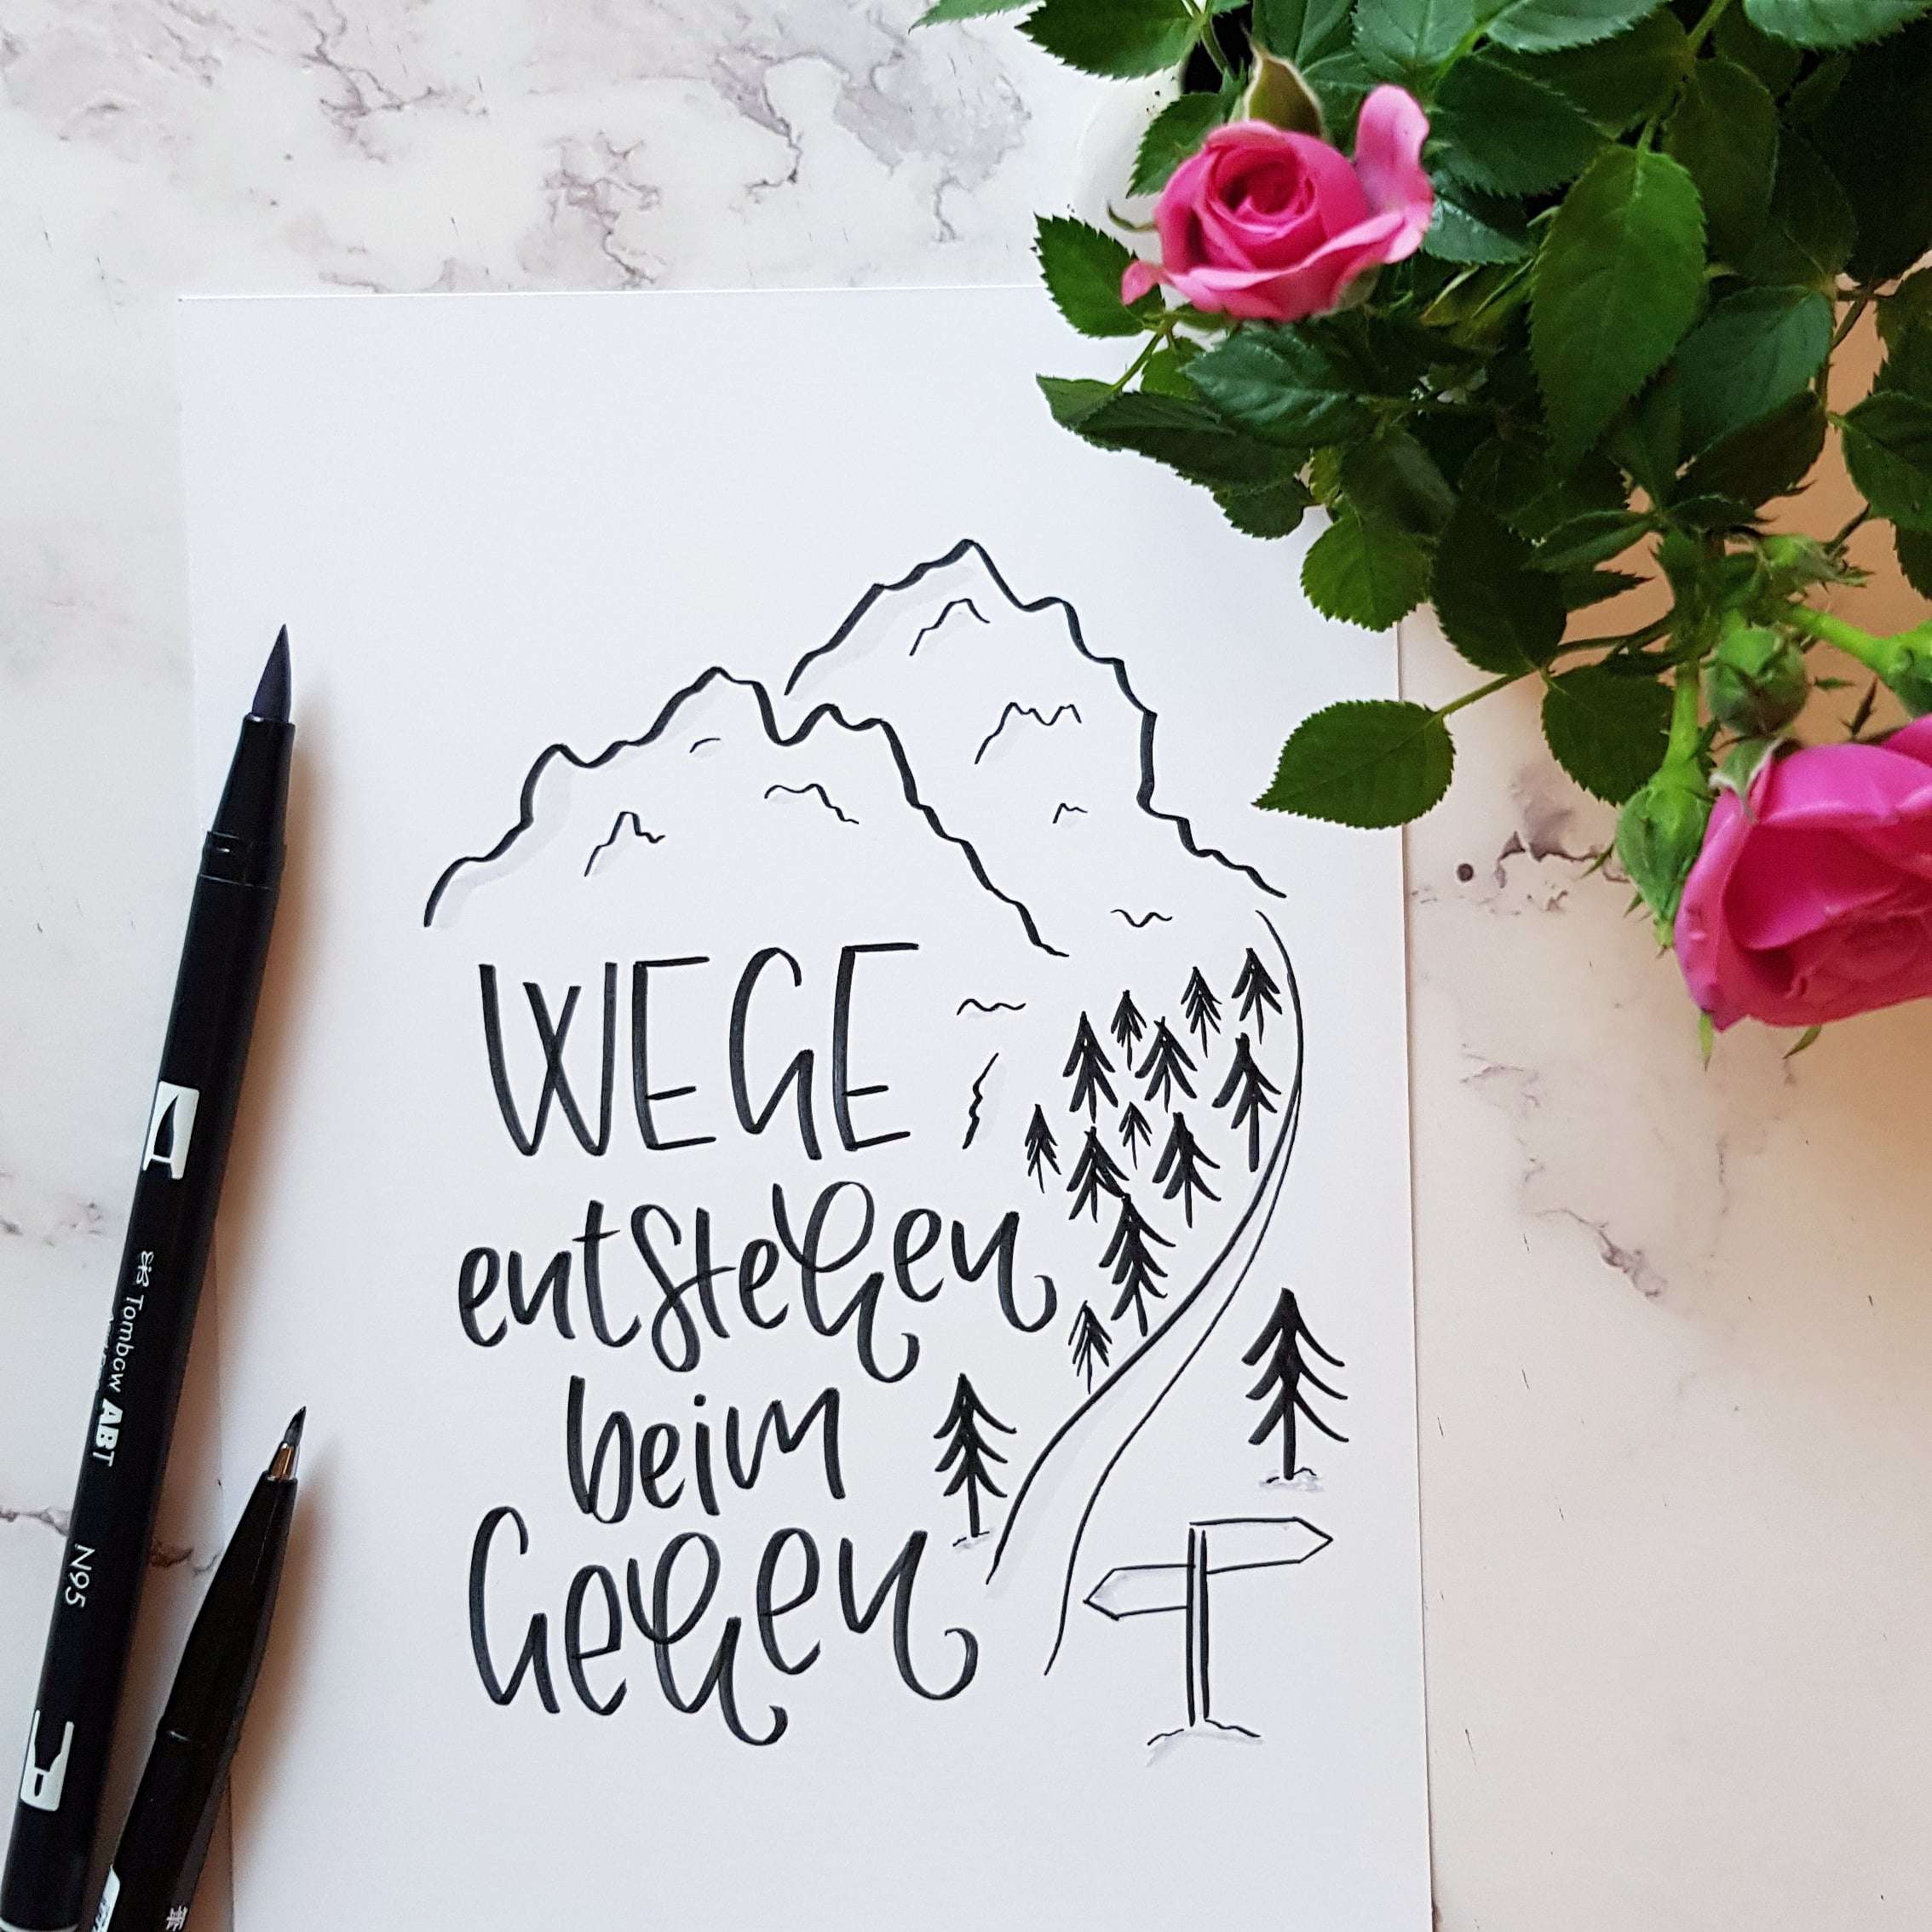 WEGE
entstehen
beim
Gehen
Tombow ABT
N95